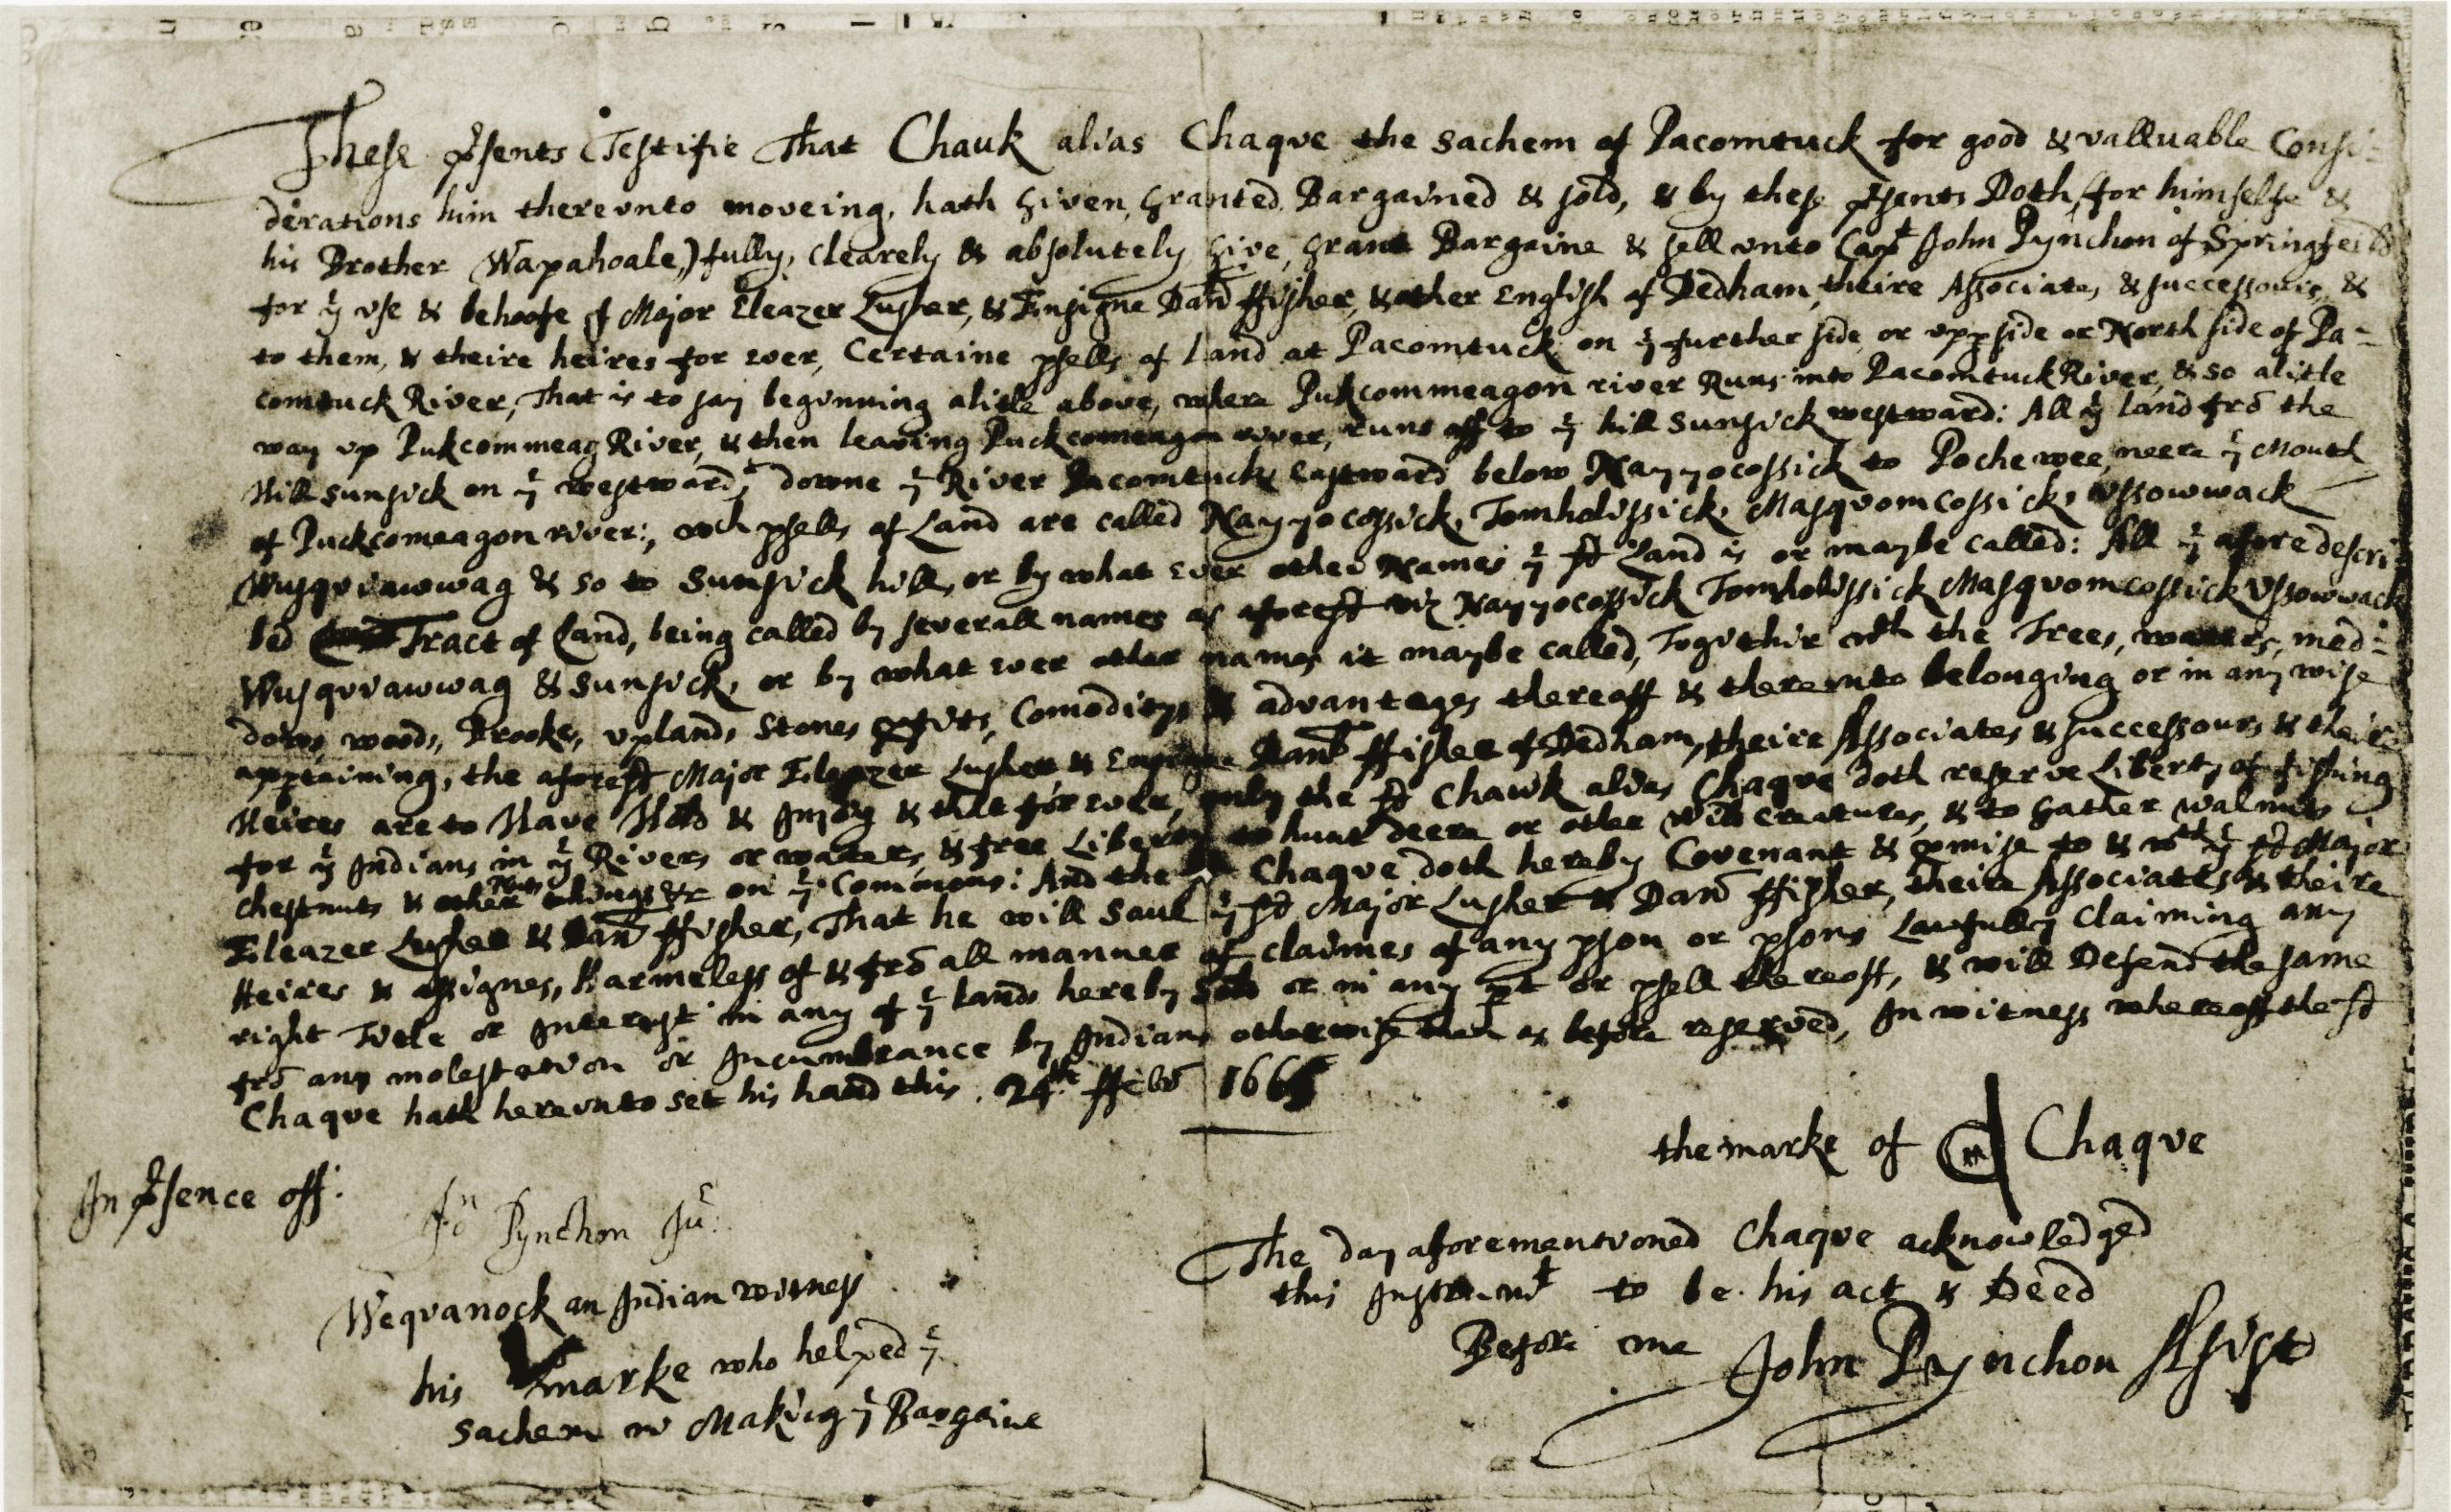 These psents Testifie That Chauk alias Chaque the Sachem of Pacomtuck for good & valluable Consi=
derations him therevnto moveing, hath Given, Granted, Bargained & sold, & by these psents Doth (for himselfe &
his Brother Wapahoale,) fully, Clearely & absolutely Give, Grant Bargaine & sell vnto Capt John Pynchon of Springfeild
for ye vse & behoofe of Major Eleazer Lusher, & Ensigne Danll ffisher, & other English of Dedham, theire Associates, & successours, &
to them, & theire heires for ever, Certaine psells of Land at Pacomtuck on ye further side, or vpp side or North side of Pa=
comtuck River, That is to say beginning alitle above, where Pukcommeagon river Runs into Pacomtuck River, & so alitle
way vp Pukcommeag River, & then leaving Puckcomeagon river, runs off to ye hill Sunsick westward: All ye land frō the
Hill Sunsick on ye westward, downe ye River Pacomtuck Eastward below Nayyocossick to Pochewee neere ye Mouth
of Puckcomeagon river:, wch psells of Land are called Nayyocossick, Tomholissick, Masquomcossick, Vssowwack
Wusqviawwag & so to Sunsick hill, or by what ever other Names ye sd Land is or maybe called: All ye afore descri=
bed Tract of Land, being called by severall names as aforesd viz Nayyocossick Tomholissick Masquomcossick Vssowwack
Wusqviawwag & Sunsick, or by what ever other names it maybe called, Togithir wth the Trees, waters, med=
dows, woods, Brooks, vplands Stones pfits, Comoditys & advantages thereoff & therevnto belonging or in any wise
apptaining, the aforesd Major Eleazer Lusher & Ensigne Danll ffisher of Dedham, theire Associates & successours & theire
Heires are to Have Hold & Injoy & that for ever, only the sd Chawk alias Chaque doth reserve Liberty of fishing
for ye Indians in ye Rivers or waters, & free Liberty to hunt deere or other Wild creatures, & to Gather walnuts
chestnuts & other nuts things &c on ye Commons: And the sd Chaque doth hereby Covenant & pmise to & wth ye sd Major
Eleazer Lusher & Danll ffisher, That he will Save ye sd Major Lusher & Danll ffisher, theire Associates & theire
Heires & assignes, Harmeless of & frō all manner of claimes of any pson or psons Lawfully Claiming any
right Title or Interest in any of ye Lands hereby sold or in any pt or psell thereoff, & will Defend the same
frō any molestation or Incumbrance by Indians otherwise then as before reserved, In witness whereoff the sd
Chaque hath herevnto set his hand this. 24th ffebr 1665
the marke of Chaque
In psence off:
Jon Pynchon Jur:
Wequanock an Indian witness
his marke who helped ye
Sachem in Making ye Bargaine
The day aforementioned Chaque acknowledged
this Instrumt to be his act & Deed
Before me John Pynchon Assist